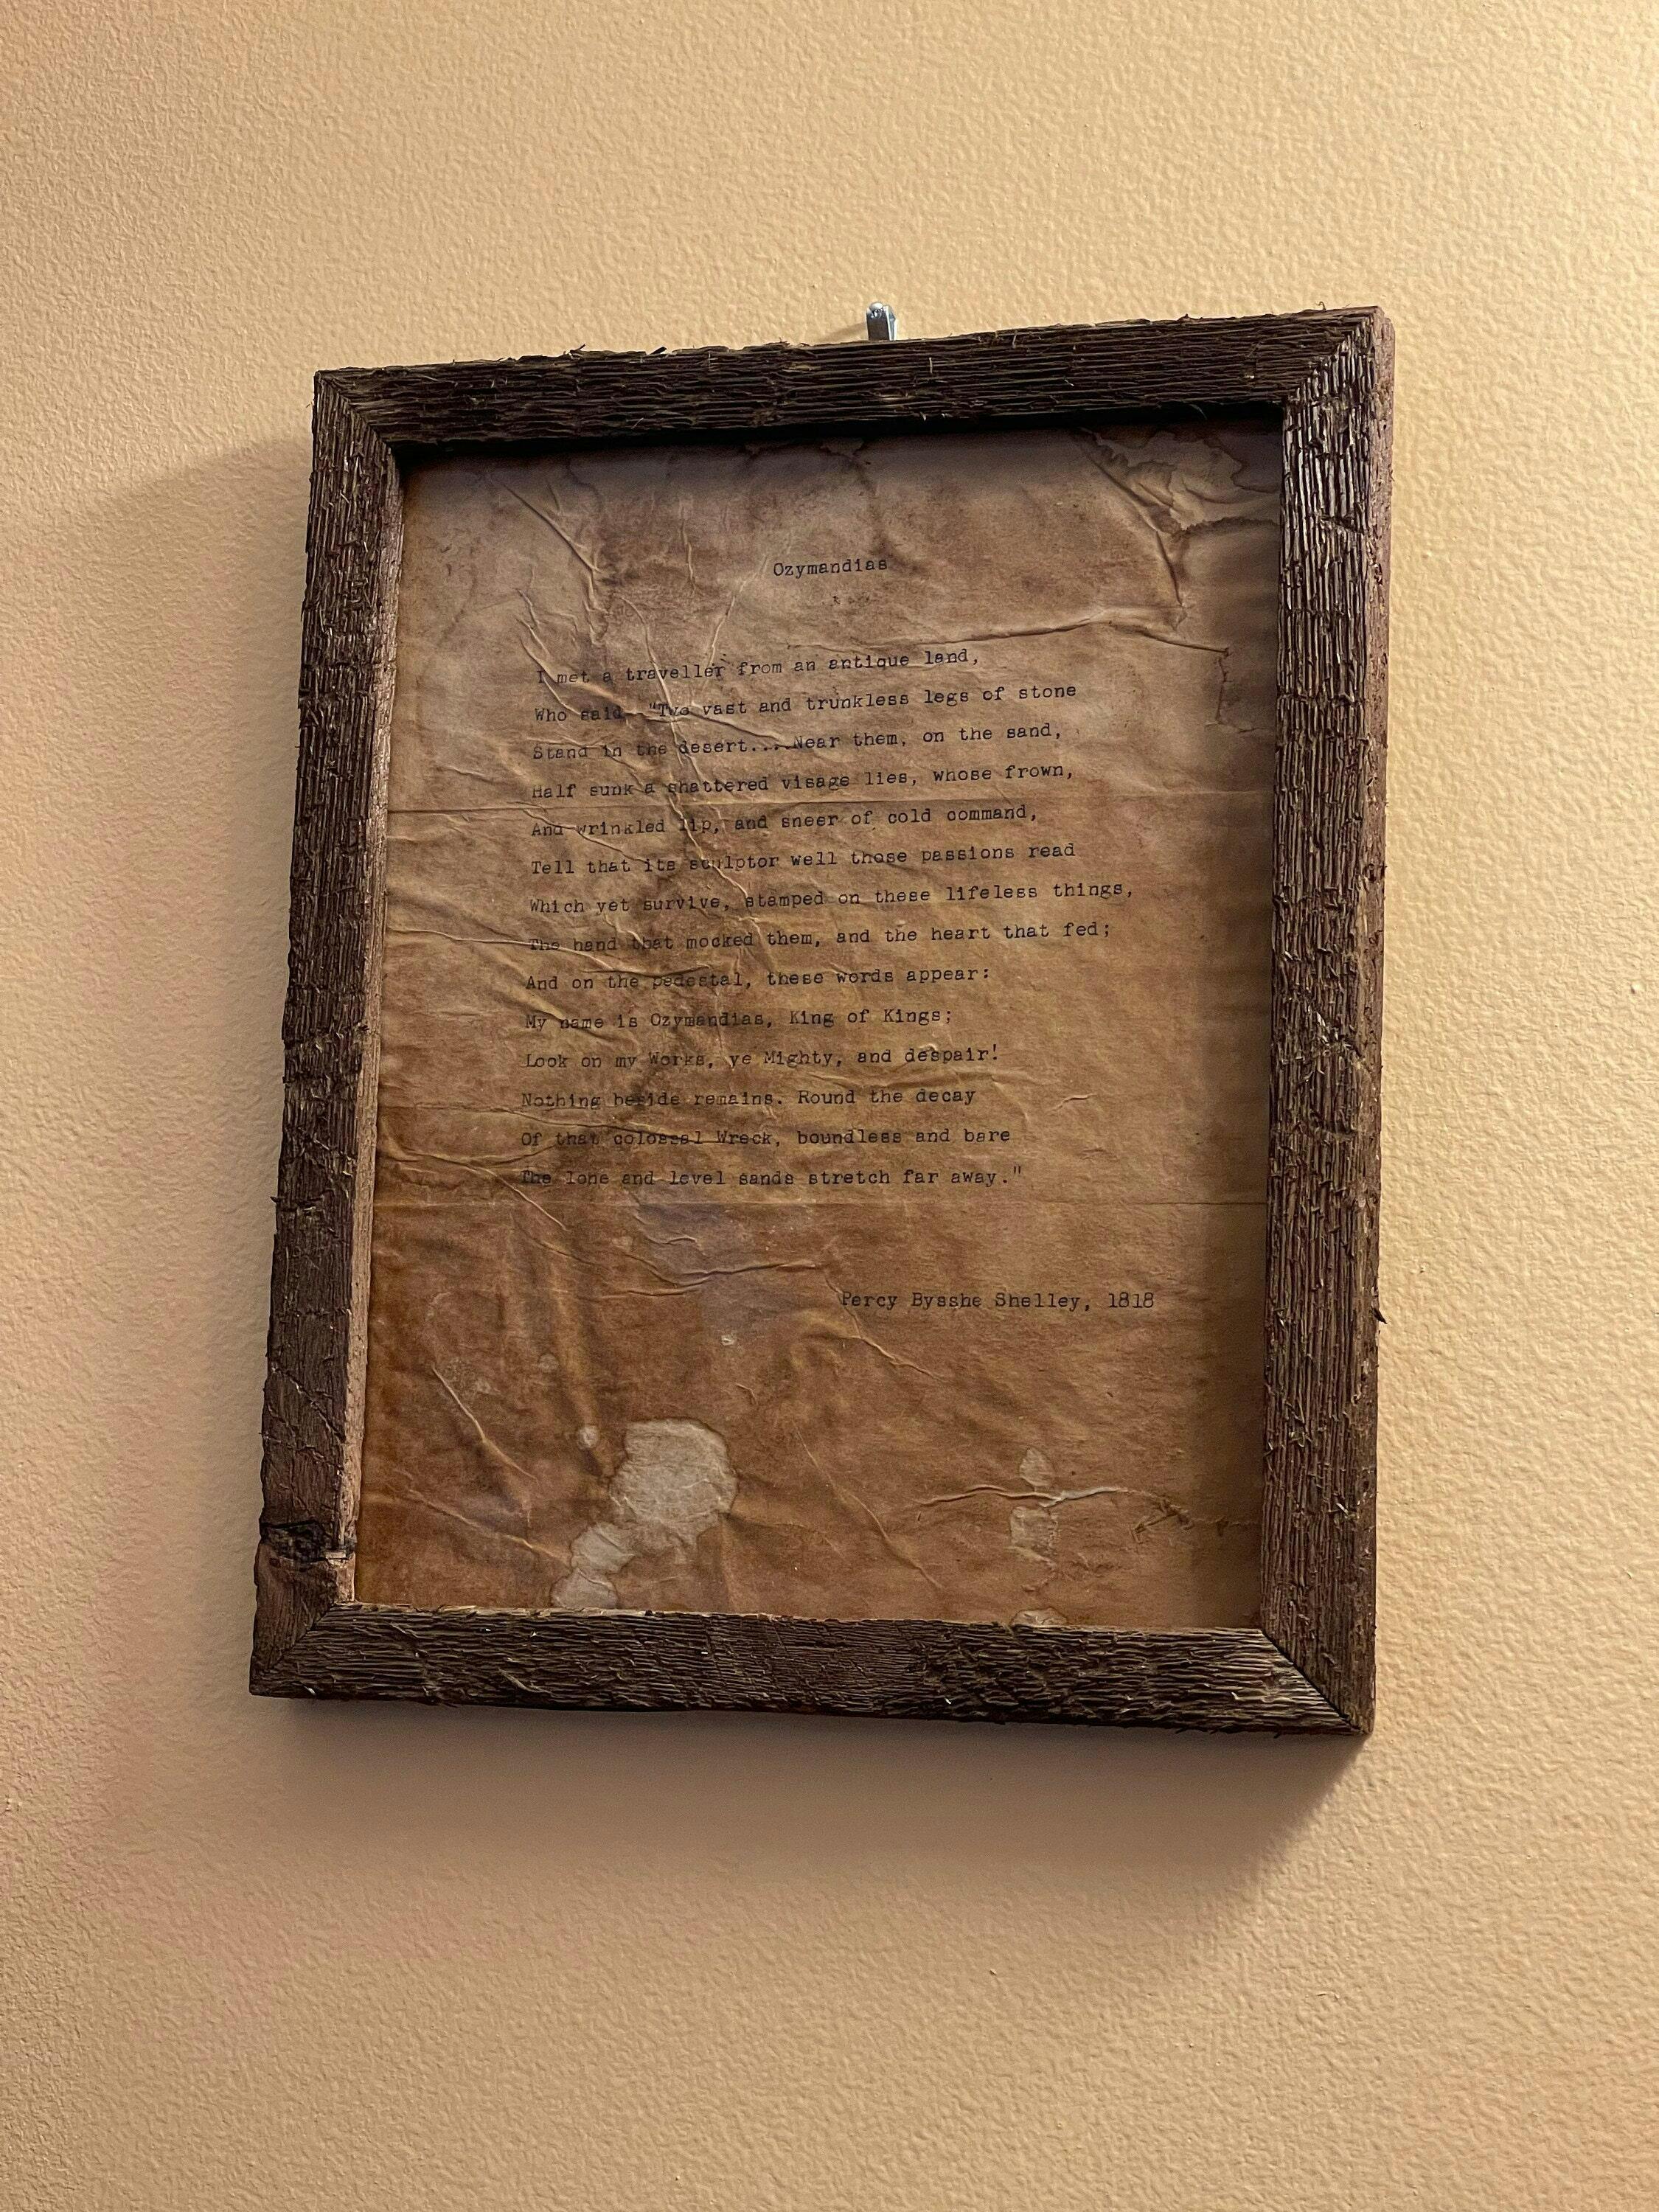 Ozymandias
I met a traveller from an antique land,
Who said— "Two vast and trunkless legs of stone
Stand in the desert....Near them, on the sand,
Half sunk a shattered visage lies, whose frown,
And wrinkled lip, and sneer of cold command,
Tell that its sculptor well those passions read
Which yet survive, stamped on these lifeless things,
The hand that mocked them, and the heart that fed;
And on the pedestal, these words appear:
My name is Ozymandias, King of Kings;
Look on my Works, ye Mighty, and despair!
Nothing beside remains. Round the decay
Of that colossal Wreck, boundless and bare
The lone and level sands stretch far away."
Percy Bysshe Shelley, 1818